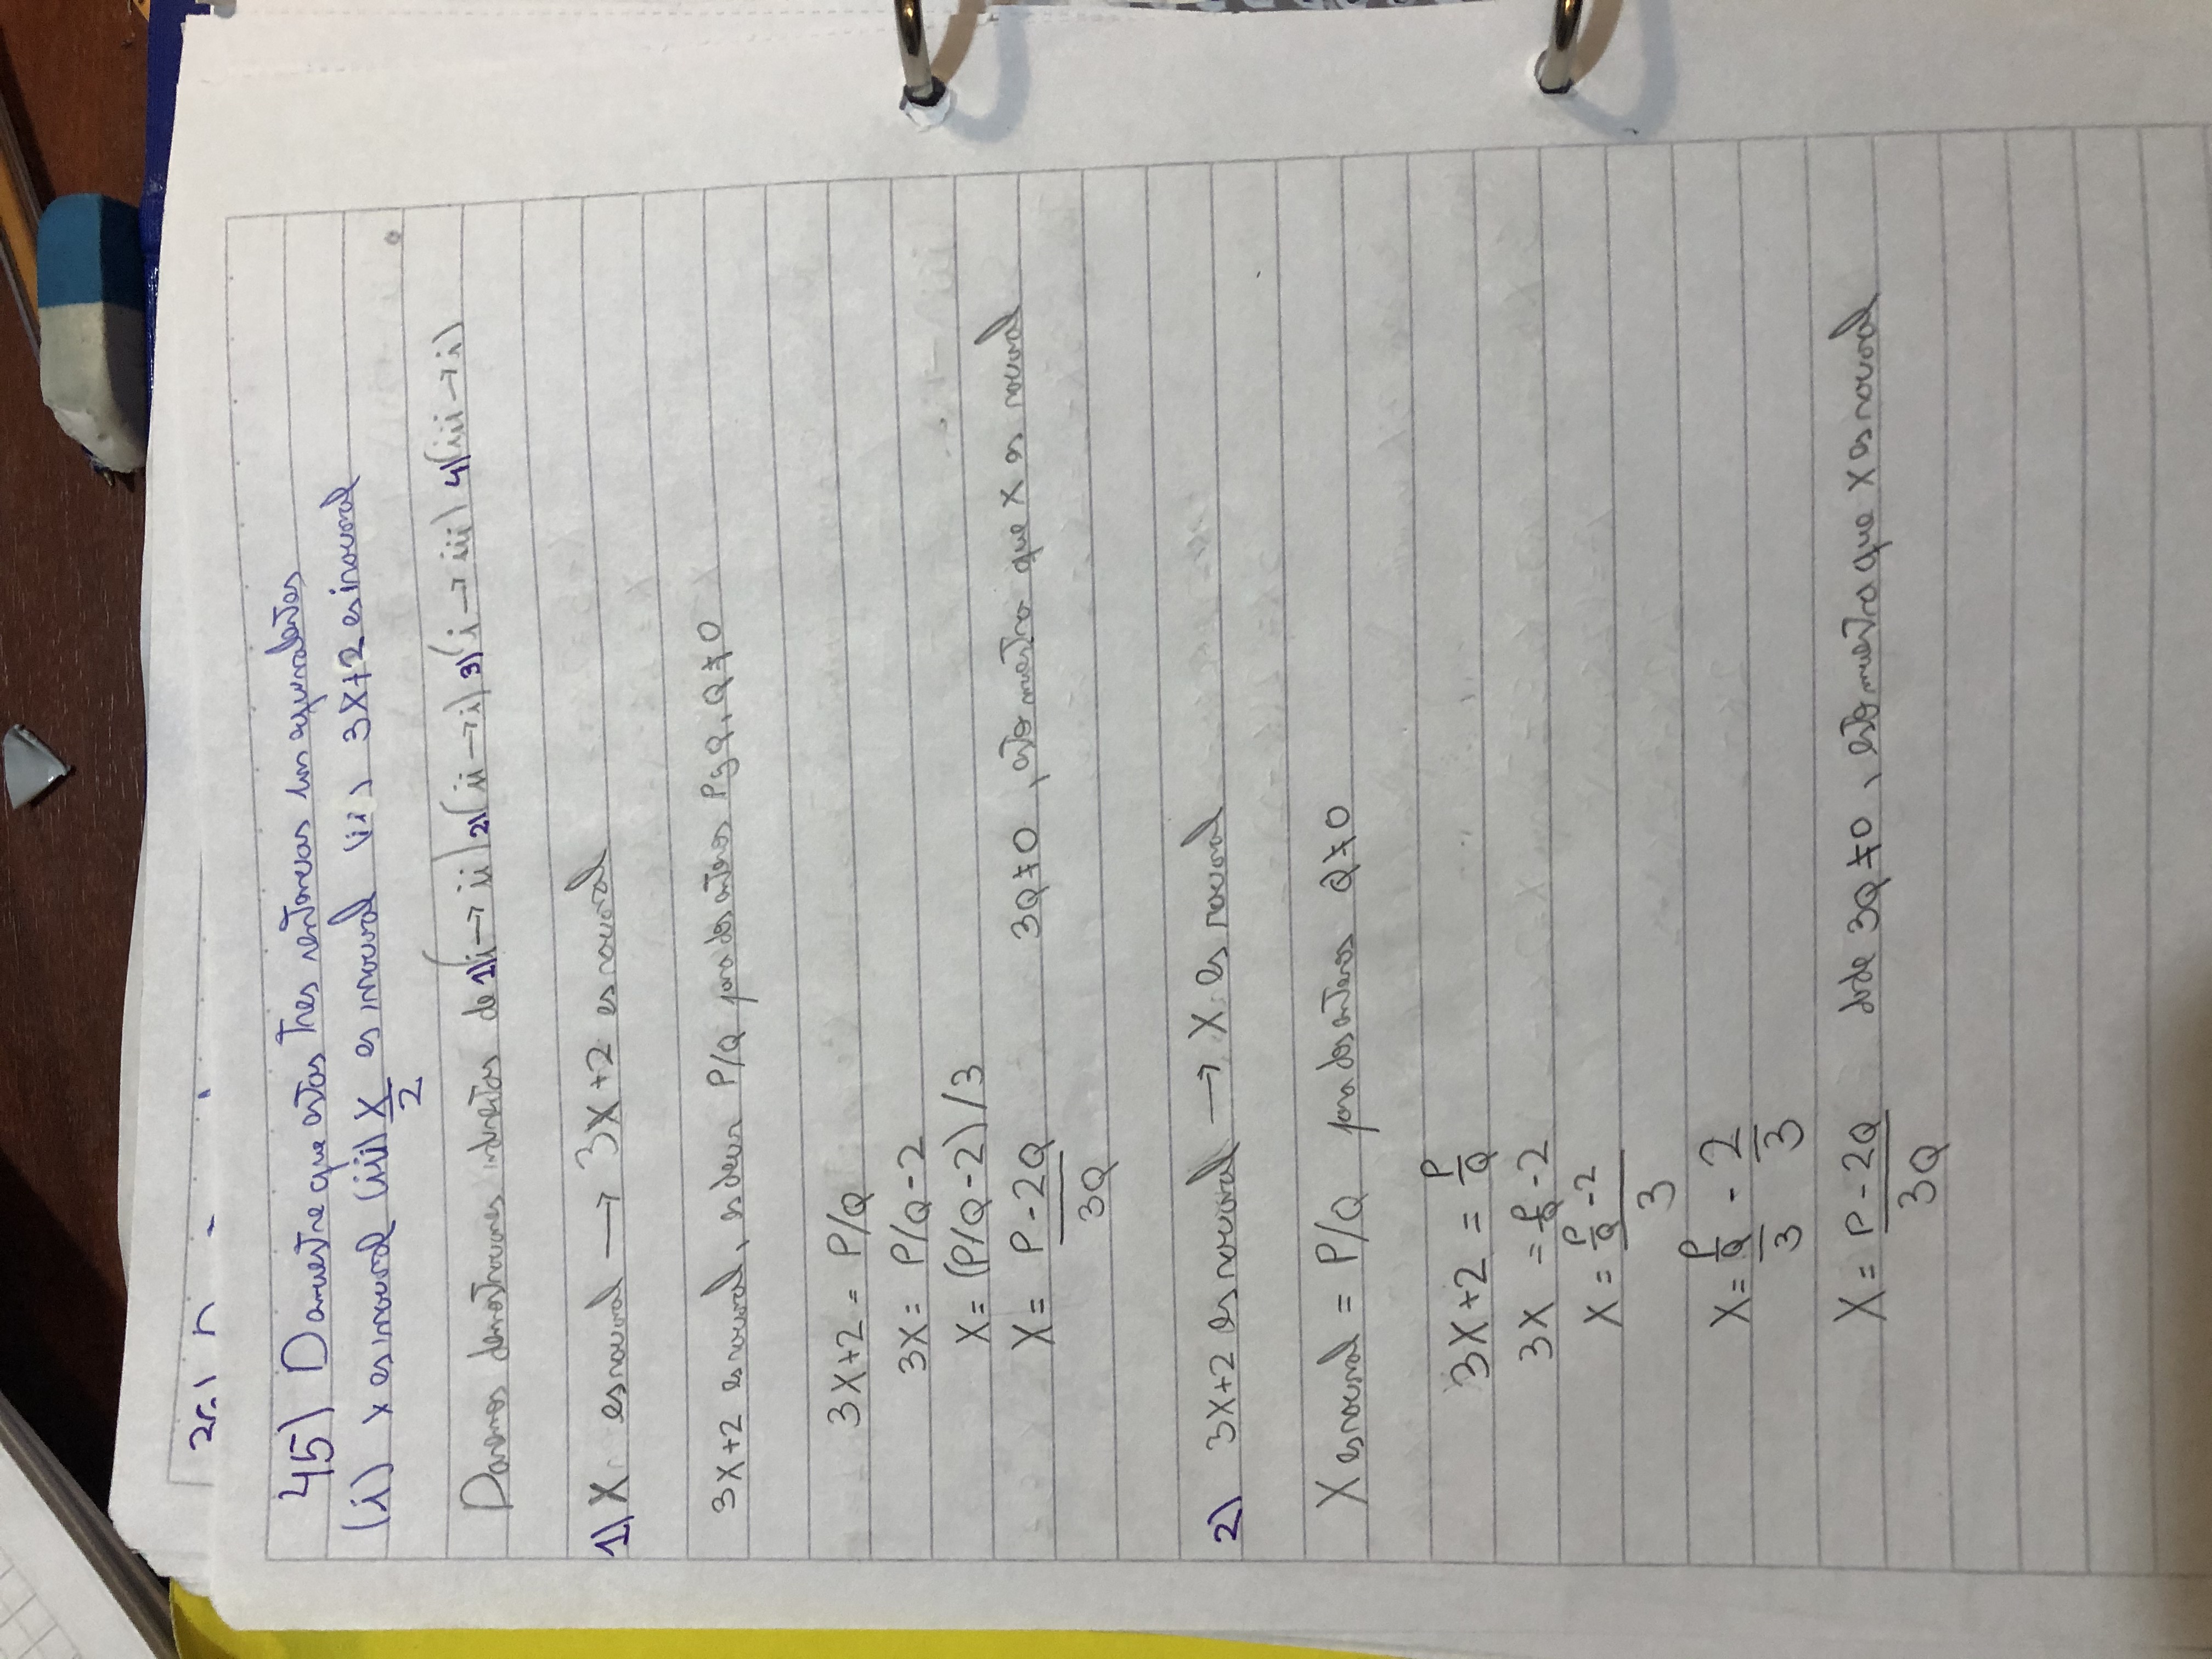 45) Demuestre que estas tres sentencias son equivalentes
(i) x es irracional (iii) x/2 es irracional (ii) 3x+2 es irracional
Daremos demostraciones indirectas de 1)(i → ii) 2)(ii → i) 3)(i → iii) 4)(iii → i)
1) X es racional → 3X+2 es racional
3X+2 es racional, es decir P/Q para dos enteros P y Q, Q≠0
3X+2 = P/Q
3X = P/Q-2
X = (P/Q-2)/3
X = P-2Q/3Q 3Q≠0, esto muestra que X es racional
2) 3X+2 es racional → X es racional
X es racional = P/Q para dos enteros Q≠0
3X+2 = P/Q
3X = P/Q -2
X = P/Q -2/3
X = P/Q/3 - 2/3
X = P-2Q/3Q dnde 3Q≠0, esto muestra que X es racional